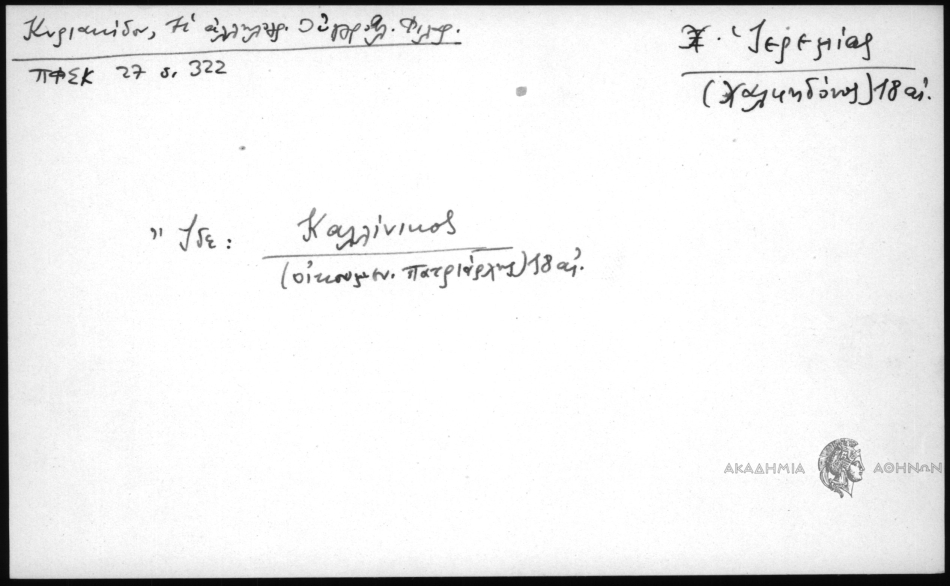 Κυριακίδου, Ἡ ἀλληλογρ.
ΠΦΣΚ 27 σ. 322
Ἱερεμίας
(Χαλκηδόνος) 18 αἰ.
" Ἰδε: Καλλίνικος
(οἰκουμεν. πατριάρχης) 18 αἰ.
ΑΚΑΔΗΜΙΑ ΑΘΗΝΩΝ